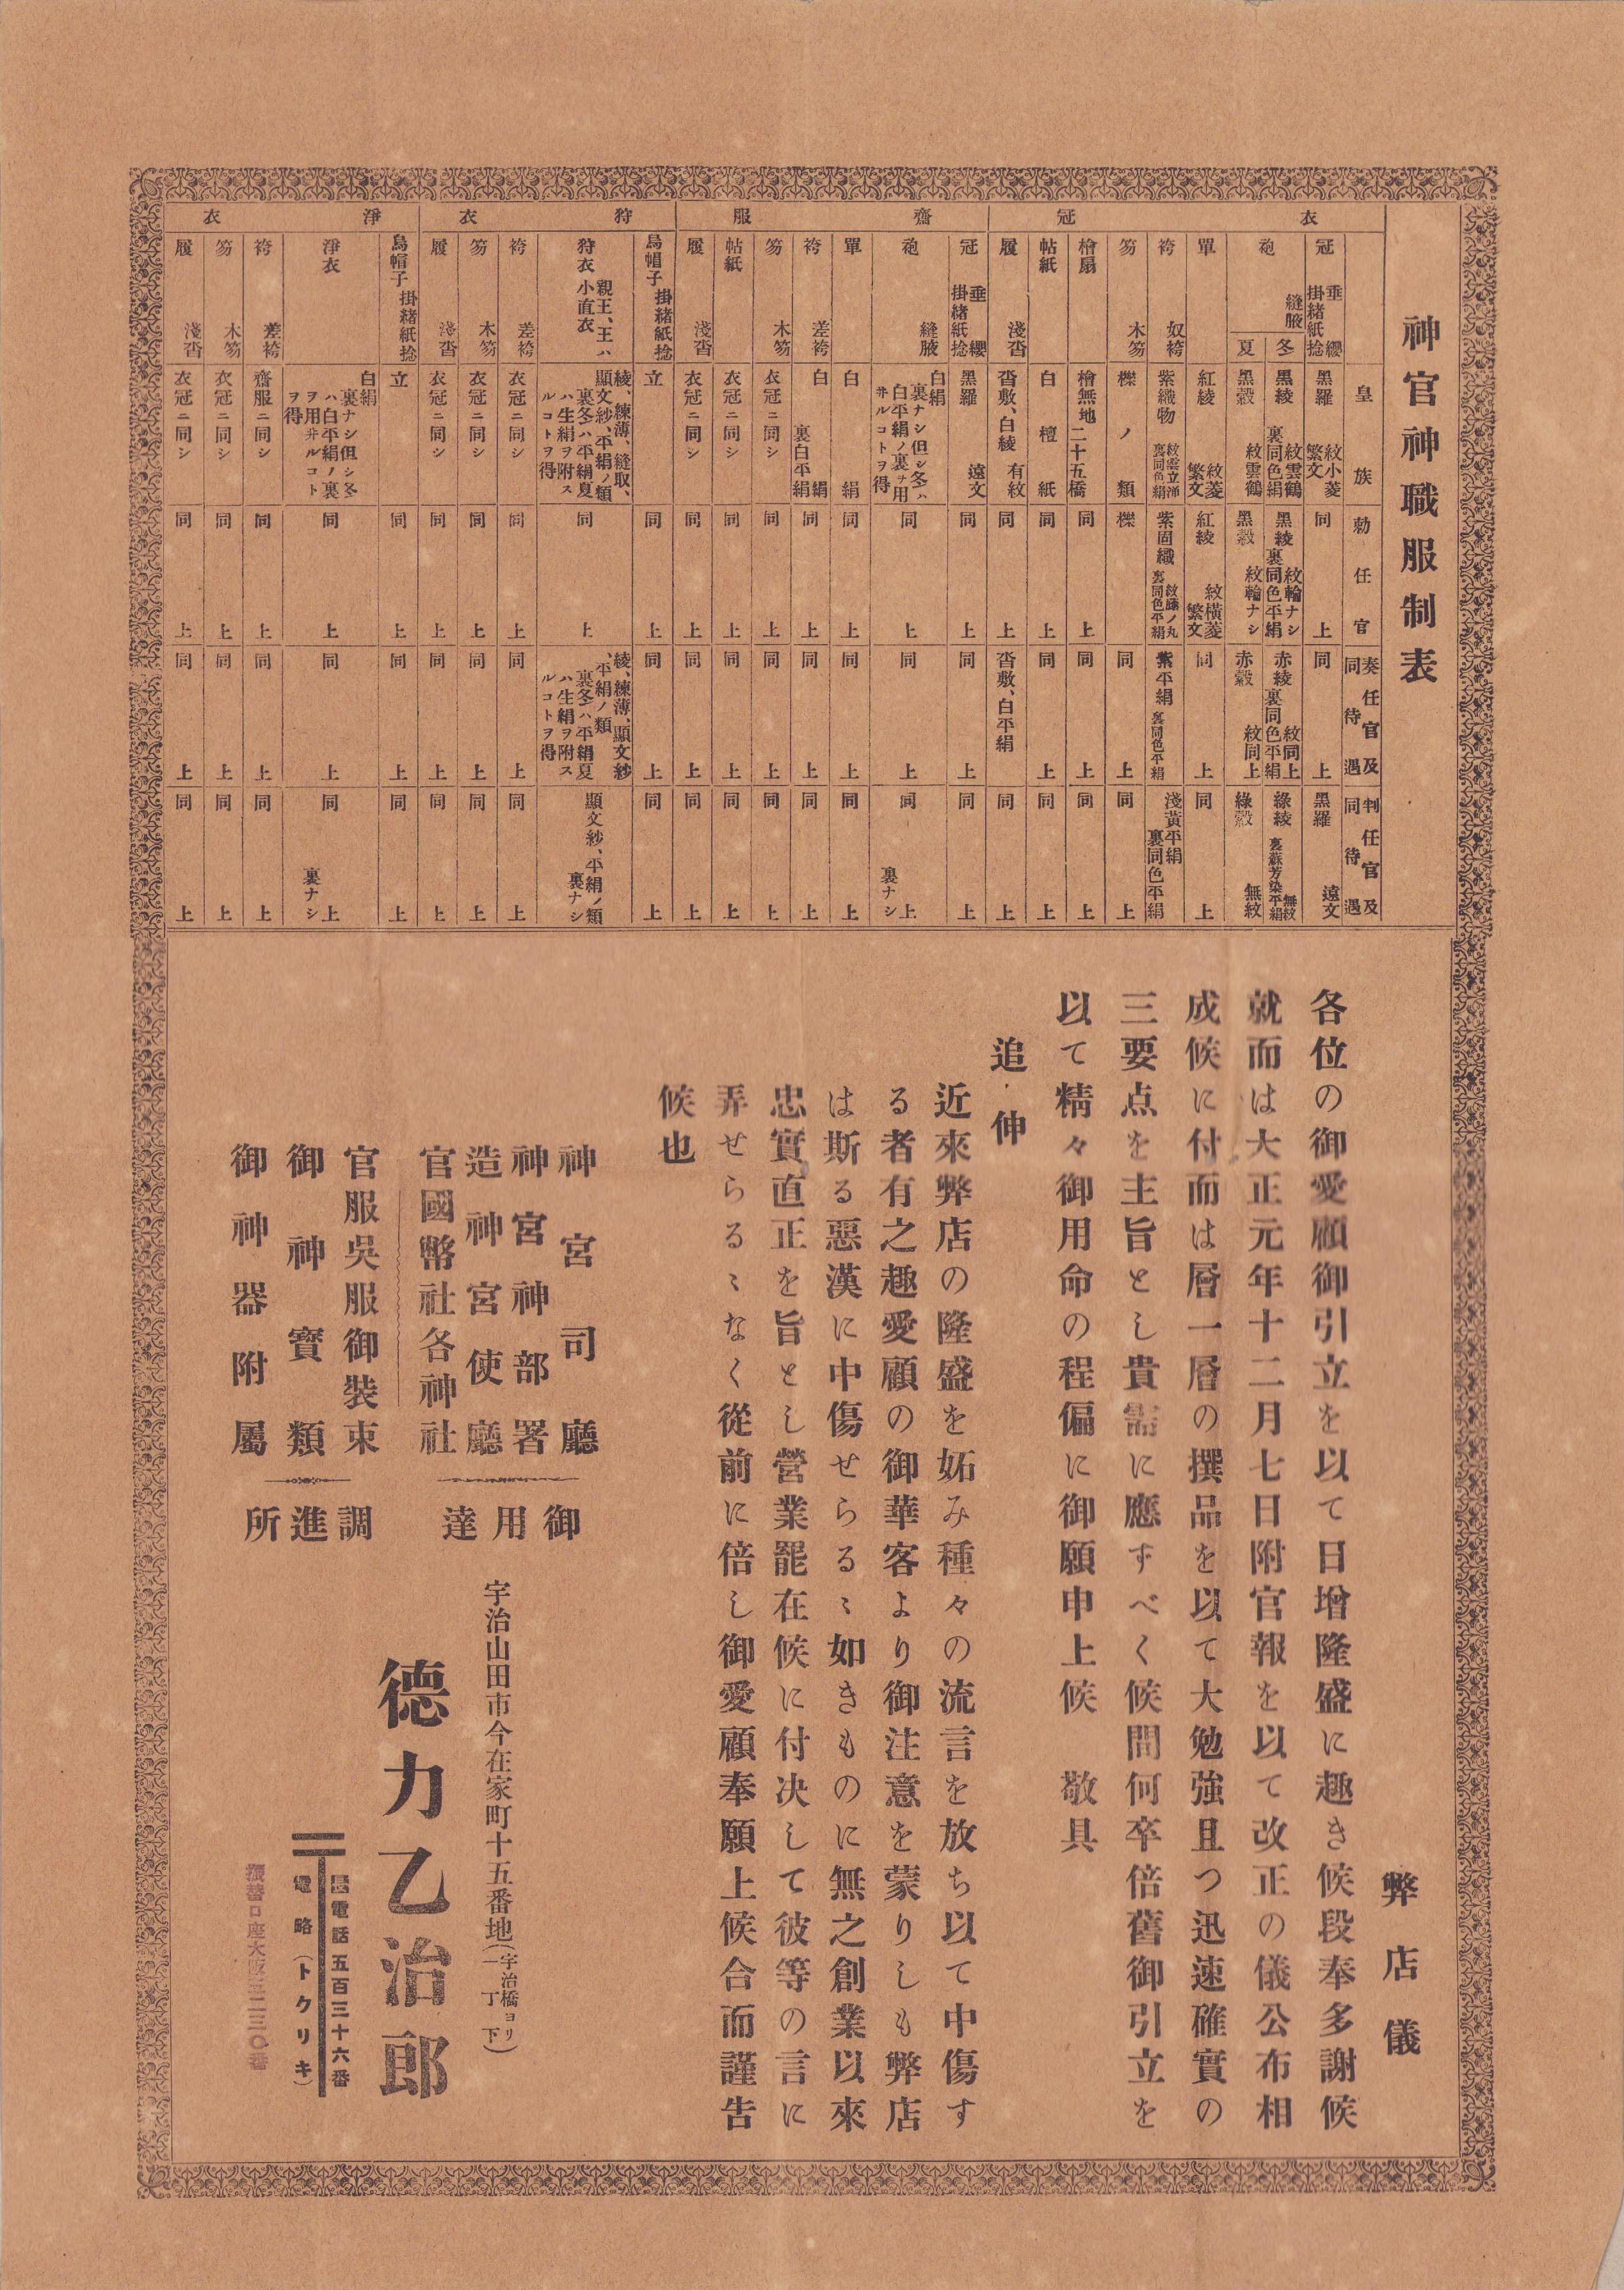 神官神職服制表
皇族
勅任官
奏任官及同待遇
判任官及同待遇
衣冠
冠 垂纓 掛緒紙捻 黑羅 紋小菱 繁文 同上 同上 黑羅 遠文
袍 縫腋 冬 黑綾 紋雲鶴 裏同色絹 黑綾 紋輪ナシ 裏同色平絹 赤綾 紋同上 裏同色平絹 綠綾 無紋 裏蘇芳染平絹
夏 黑縠 紋雲鶴 黑縠 紋輪ナシ 赤縠 紋同上 綠縠 無紋
單 紅綾 紋菱 繁文 紅綾 紋橫菱 繁文 同上 同上
袴 奴袴 紫織物 紋雲立涌 裏同色絹 紫固織 紋藤ノ丸 裏同色平絹 紫平絹 裏同色平絹 淺黃平絹 裏同色平絹
笏 木笏 櫟ノ類 櫟 同上 同上
檜扇 檜無地二十五橋 同上 同上 同上
帖紙 白檀紙 同上 同上 同上
履 淺沓 沓敷、白綾 有紋 同上 沓敷、白平絹 同上
齋服
冠 垂纓 掛緒紙捻 黑羅 遠文 同上 同上 同上
袍 縫腋 白絹 裏ナシ但シ冬ハ白平絹ノ裏ヲ用井ルコトヲ得 同上 同上 同上 裏ナシ
單 白絹 同上 同上 同上
袴 差袴 白絹 裏白平絹 同上 同上 同上
笏 木笏 衣冠ニ同シ 同上 同上 同上
帖紙 衣冠ニ同シ 同上 同上 同上
履 淺沓 衣冠ニ同シ 同上 同上 同上
狩衣
烏帽子 掛緒紙捻 立 同上 同上 同上
狩衣 親王、王ハ小直衣 綾、練薄、縫取、顯文紗、平絹ノ類 裏冬ハ平絹夏ハ生絹ヲ附スルコトヲ得 同上 綾、練薄、顯文紗、平絹ノ類 裏冬ハ平絹夏ハ生絹ヲ附スルコトヲ得 顯文紗、平絹ノ類 裏ナシ
袴 差袴 衣冠ニ同シ 同上 同上 同上
笏 木笏 衣冠ニ同シ 同上 同上 同上
履 淺沓 衣冠ニ同シ 同上 同上 同上
淨衣
烏帽子 掛緒紙捻 立 同上 同上 同上
淨衣 白絹 裏ナシ但シ冬ハ白平絹ノ裏ヲ用井ルコトヲ得 同上 同上 同上 裏ナシ
袴 差袴 齋服ニ同シ 同上 同上 同上
笏 木笏 衣冠ニ同シ 同上 同上 同上
履 淺沓 衣冠ニ同シ 同上 同上 同上
弊店儀
各位の御愛顧御引立を以て日增隆盛に趣き候段奉多謝候
就而は大正元年十二月七日附官報を以て改正の儀公布相
成候に付而は層一層の撰品を以て大勉強且つ迅速確實の
三要点を主旨とし貴需に應ずべく候間何卒倍舊御引立を
以て精々御用命の程偏に御願申上候 敬具
追伸
近來弊店の隆盛を妬み種々の流言を放ち以て中傷す
る者有之趣愛顧の御華客より御注意を蒙りしも弊店
は斯る惡漢に中傷せらるゝ如きものに無之創業以來
忠實直正を旨とし營業罷在候に付决して彼等の言に
弄せらるゝなく從前に倍し御愛顧奉願上候合而謹告
候也
神宮司廳
神宮神部署
造神宮使廳
官國幣社各神社
御用達
官服吳服御裝束
御神寶類
御神器附屬
調進所
宇治山田市今在家町十五番地(宇治橋ヨリ一丁下)
德力乙治郎
長電話五百三十六番
電略(トクリキ)
振替口座大阪三二三〇番